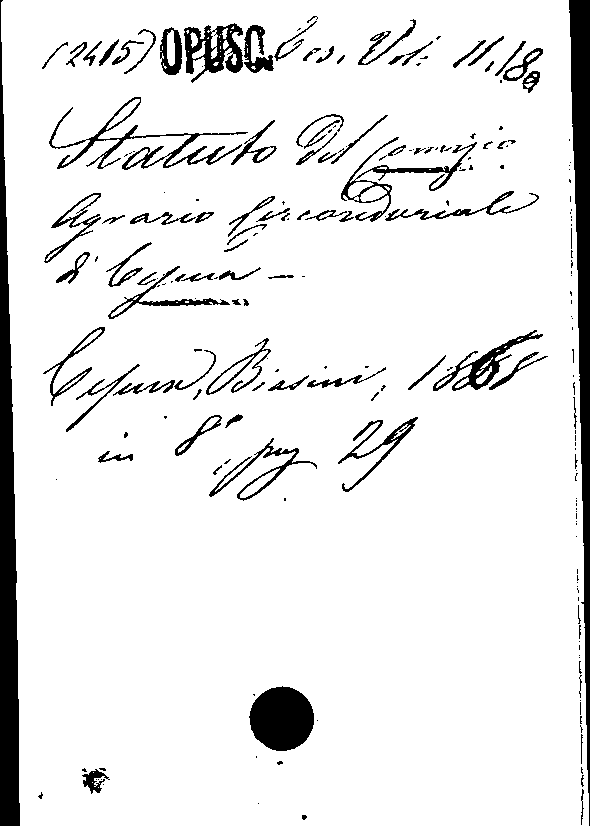 (2415) OPUSC. Ces. Vol: 11,18a
Statuto del Comizio
Agrario Circondariale
di Cesena —
Cesena, Biasini, 1868
in 8° pag 29